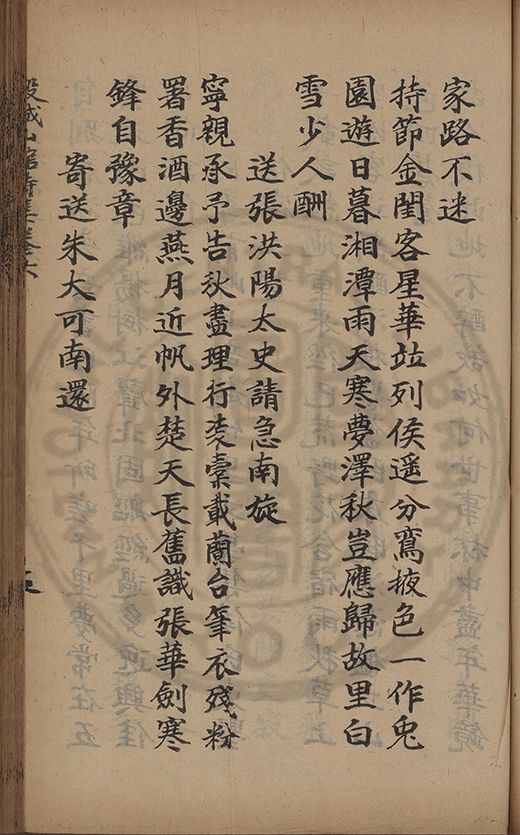 家路不迷
持節金閨客星華竝列侯遥分鴛掖色一作兎
園遊日暮湘潭雨天寒夢澤秋豈應歸故里白
雪少人酬
送張洪陽太史請急南旋
寧親承予告秋盡理行裝槖載蘭台筆衣殘粉
署香酒邊燕月近帆外楚天長舊識張華劍寒
鋒自豫章
寄送朱大可南還
穀城山館詩集卷六
五